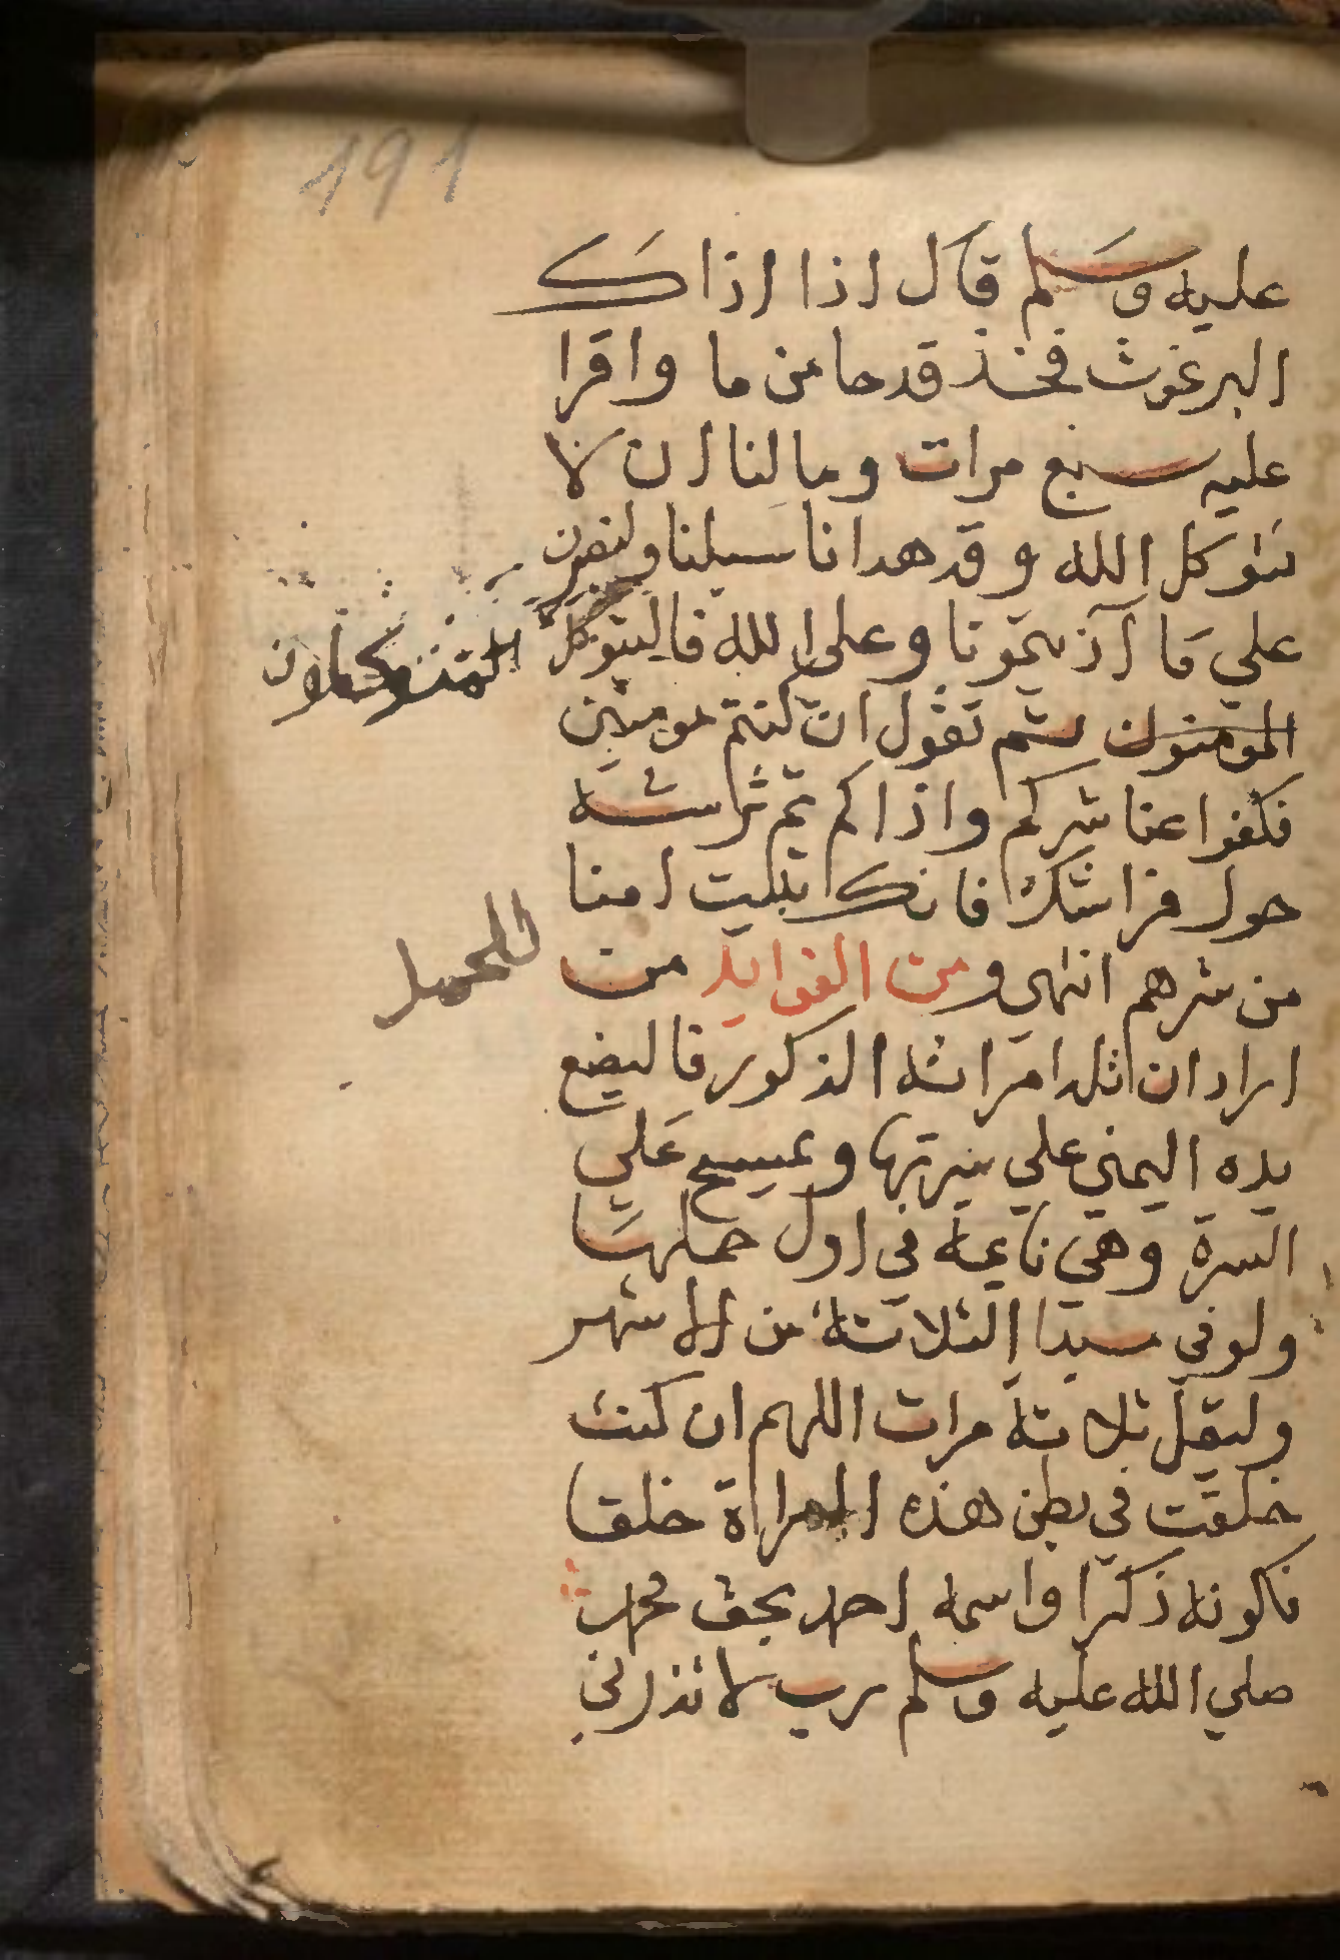 191
عليه وسلم قال اذا اذاك
البرغوث فخذ قدحا من ما واقرا
عليه سبع مرات وما لنا ان لا
نتوكل الله وقد هدانا سبلنا ولنصبرن
علي ما آذيتمونا وعلى الله فاليتوكل المتوكلون
المومنون ثم تقول ان كنتم مومنين
فكفوا عنا شركم واذاكم ثم ترشه
حول فراشك فانك تبيت امنا
من شرهم انتهي ومن الفوايد من
للحمل
اراد ان تلد امراته الذكور فاليضع
يده اليمني علي سرتها ويمسح علي
السرة وهي نايمة في اول حملها
ولو في مبدا الثلاثة من الاشهر
وليقل ثلاثة مرات اللهم ان كنت
خلقت في بطن هذه المراة خلقا
فاكونه ذكرا واسمه احمد بحق محمد
صلي الله عليه وسلم رب لا تذرني